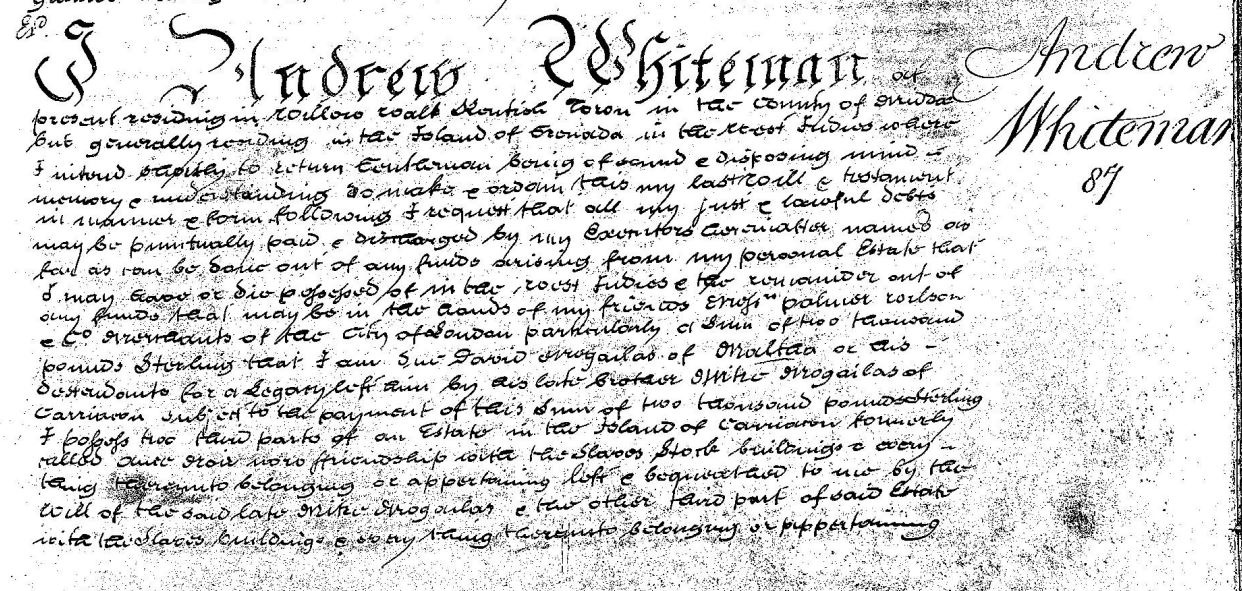 Ex.d
I Andrew Whiteman at
Andrew
Whiteman
87
present residing in Willow Walk Kentish Town in the County of Middx
but generally residing in the Island of Grenada in the West Indies where
I intend shortly to return Gentleman being of sound & disposing mind –
memory & understanding do make & ordain this my last Will & testament
in manner & form following I request that all my just & lawful debts
may be punctually paid & discharged by my Executors hereinafter named as
far as can be done out of any funds arising from my personal Estate that
I may have or die possessed of in the West Indies & the remainder out of
any funds that may be in the hands of my friends Mess.rs palmer wilson
& Co Merchants of the City of London particularly a Sum of two thousand
pounds Sterling that I am due David Mogailas of Maltha or his –
descendants for a Legacy left him by his late brother Mitre Mogailas of
Carriacou subject to the payment of this Sum of two thousand pounds Sterling
I possess two third parts of an Estate in the Island of Carriacou formerly
called now ffriendship with the Slaves Stock buildings & every –
thing thereunto belonging or appertaining left & bequeathed to me by the
Will of the said late Mitre Mogailas & the other third part of said Estate
with the Slaves buildings & every thing thereunto belonging or appertaining